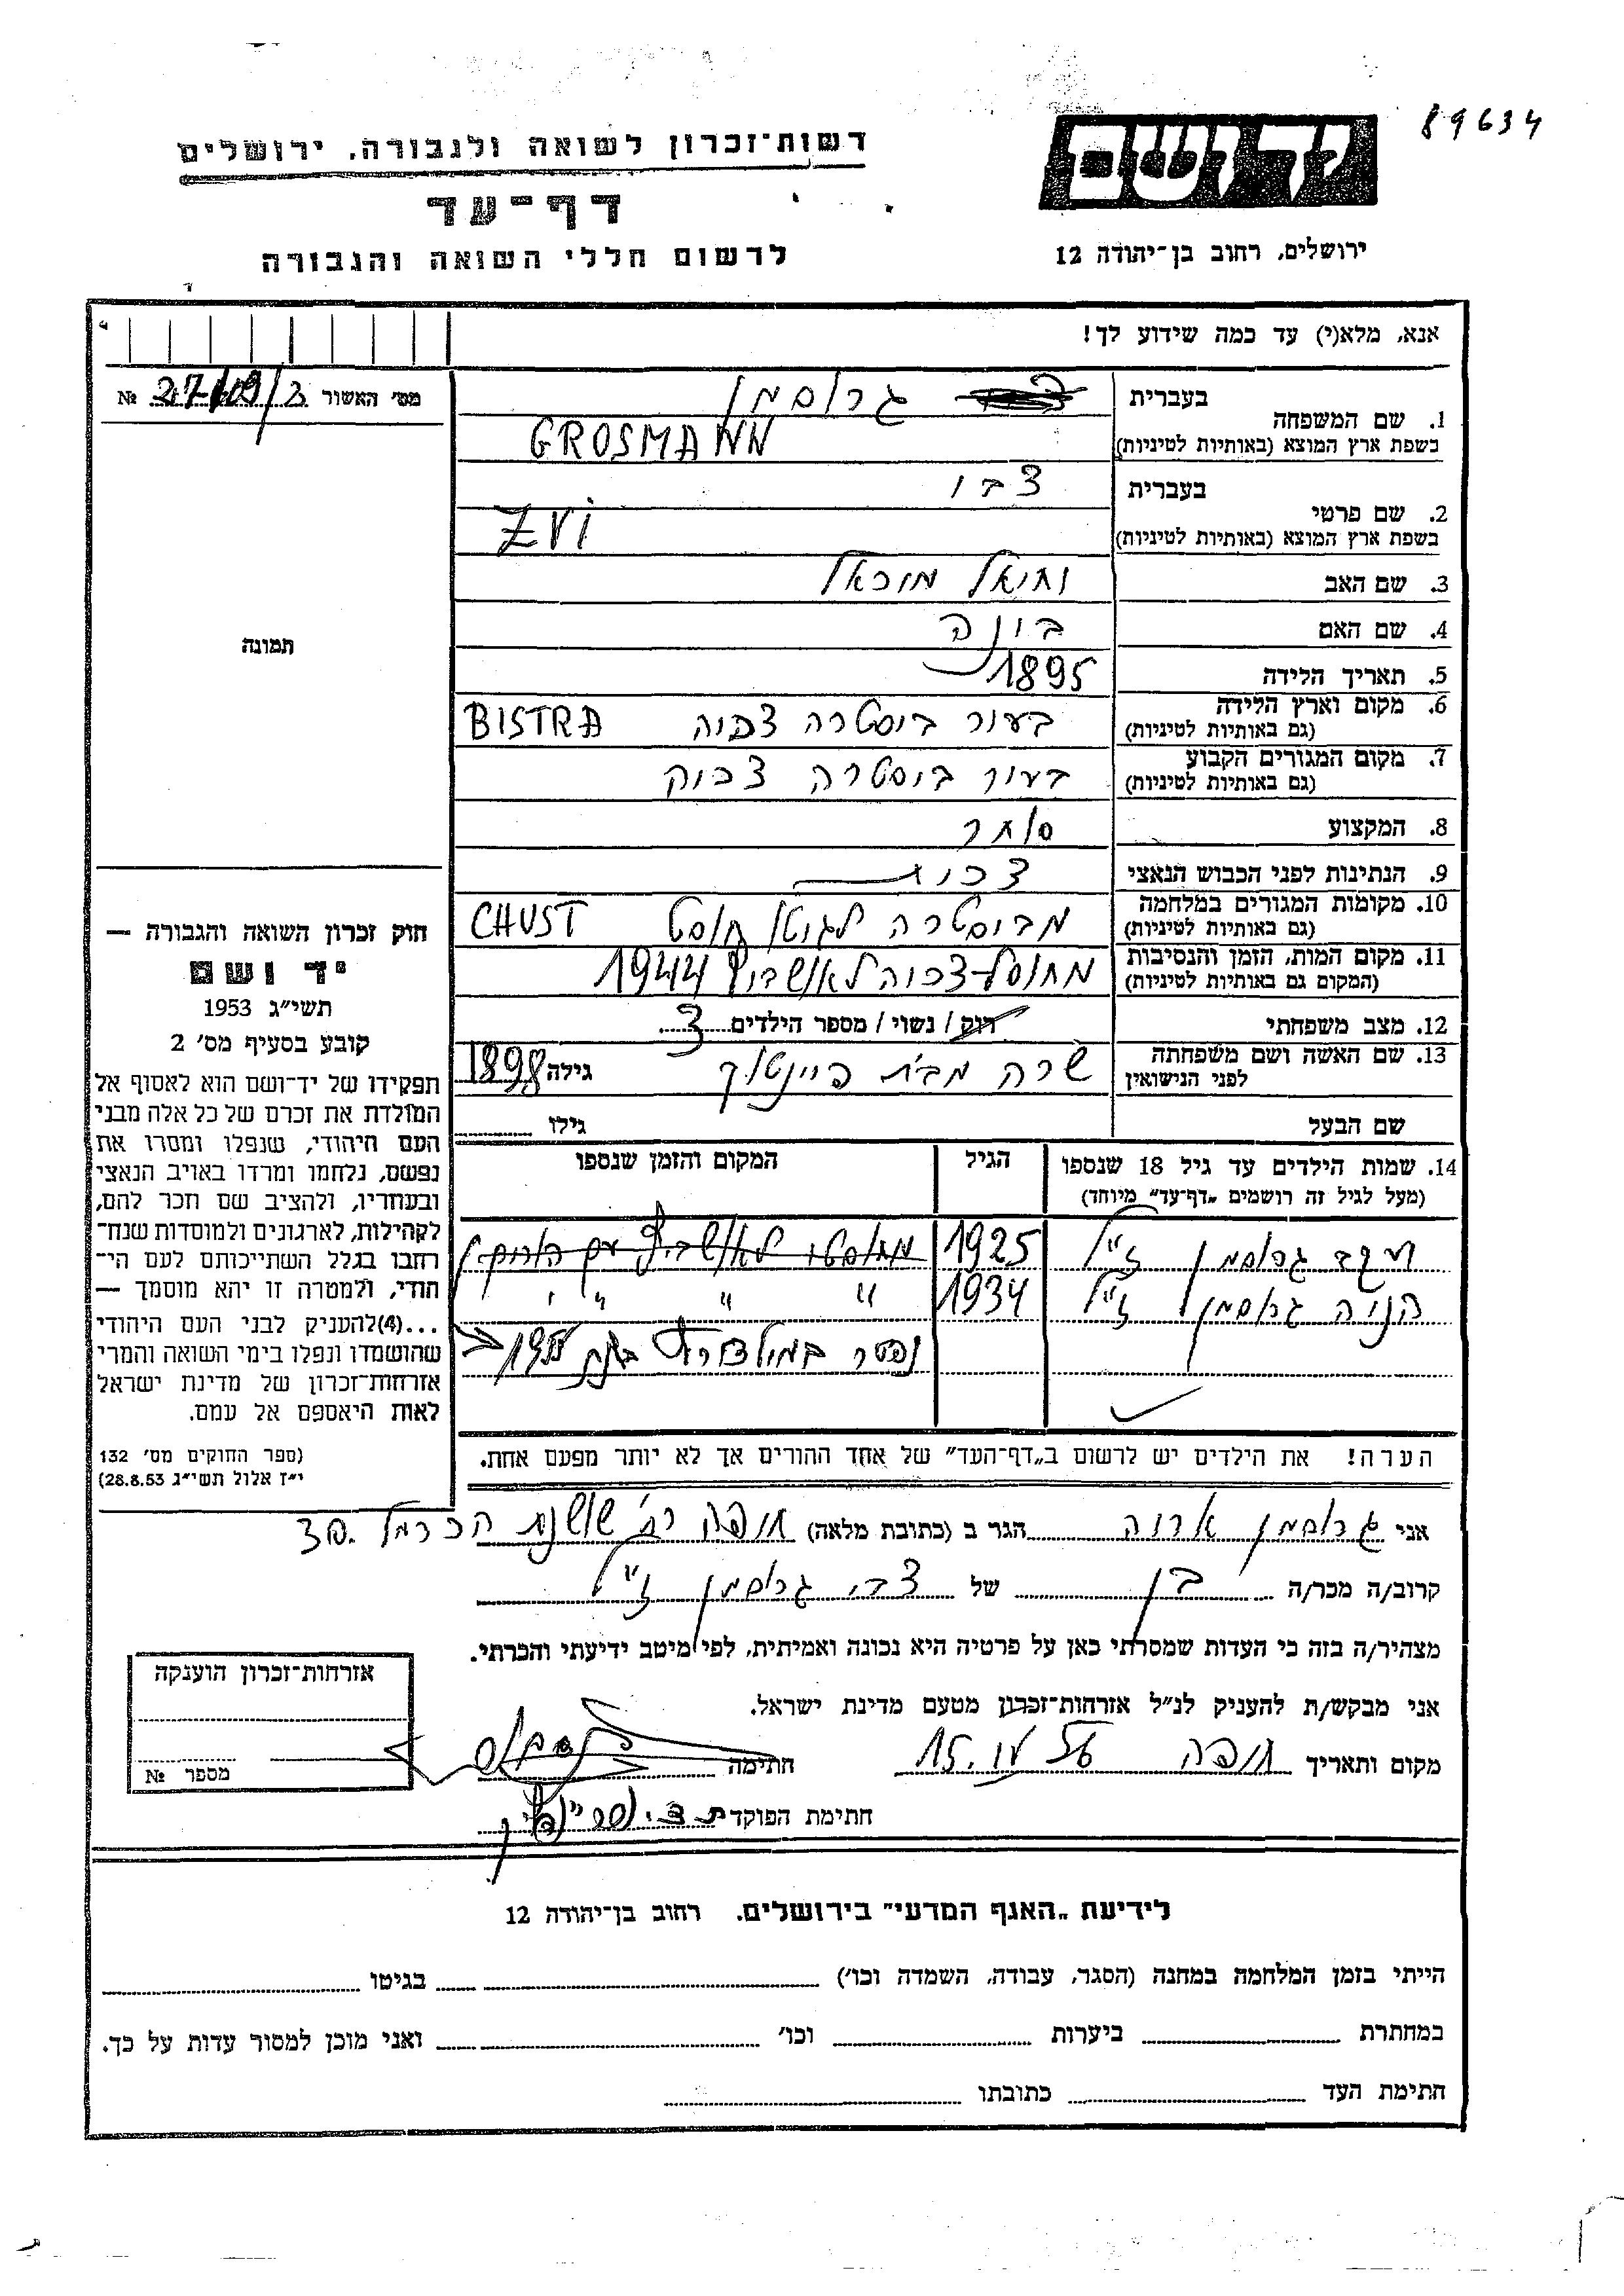 89634
יד ושם
רשות־זכרון לשואה ולגבורה, ירושלים
דף־עד
לרשום חללי השואה והגבורה
ירושלים, רחוב בן־יהודה 12
אנא, מלא(י) עד כמה שידוע לך!
מס׳ האשור №
1. שם המשפחה
בעברית גרוסמן
בשפת ארץ המוצא (באותיות לטיניות) GROSMANN
2. שם פרטי
בעברית צבי
בשפת ארץ המוצא (באותיות לטיניות) ZVI
3. שם האב יחיאל מיכאל
4. שם האם בינה
5. תאריך הלידה 1895
6. מקום וארץ הלידה
(גם באותיות לטיניות) ביסטרה BISTRA
7. מקום המגורים הקבוע
(גם באותיות לטיניות) ביסטרה
8. המקצוע סוחר
9. הנתינות לפני הכבוש הנאצי
10. מקומות המגורים במלחמה
(גם באותיות לטיניות) מביסטרה לגיטו חוסט CHUST
11. מקום המות, הזמן והנסיבות
(המקום גם באותיות לטיניות) לאושביץ 1944
12. מצב משפחתי רוק / נשוי / מספר הילדים 3
13. שם האשה ושם משפחתה
לפני הנישואין שרה מבית גילה 1898
שם הבעל גילו
14. שמות הילדים עד גיל 18 שנספו
(מעל לגיל זה רושמים „דף־עד” מיוחד)
הגיל
המקום והזמן שנספו
יעקב גרוסמן ז״ל 1925
גרוסמן ז״ל 1934 ״ ״ ״
נפטר
הערה! את הילדים יש לרשום ב„דף־העד” של אחד ההורים אך לא יותר מפעם אחת.
תמונה
חוק זכרון השואה והגבורה —
יד ושם
תשי״ג 1953
קובע בסעיף מס׳ 2
תפקידו של יד־ושם הוא לאסוף אל
המולדת את זכרם של כל אלה מבני
העם היהודי, שנפלו ומסרו את
נפשם, נלחמו ומרדו באויב הנאצי
ובעוזריו, ולהציב שם וזכר להם,
לקהילות, לארגונים ולמוסדות שנח־
רחבו בגלל השתייכותם לעם הי־
הודי, ולמטרה זו יהא מוסמך —
...(4)להעניק לבני העם היהודי
שהושמדו ונפלו בימי השואה והמרי
אזרחות־זכרון של מדינת ישראל
לאות היאספם אל עמם.
(ספר החוקים מס׳ 132
י״ז אלול תשי״ג 28.8.53)
אני גרוסמן אריה הגר ב (כתובת מלאה) חיפה רח׳ שושנת הכרמל 30.
קרוב/ה מכר/ה בן של צבי גרוסמן ז״ל
מצהיר/ה בזה כי העדות שמסרתי כאן על פרטיה היא נכונה ואמיתית, לפי מיטב ידיעתי והכרתי.
אני מבקש/ת להעניק לנ״ל אזרחות־זכרון מטעם מדינת ישראל.
מקום ותאריך חיפה חתימה
חתימת הפוקד
אזרחות־זכרון הוענקה
מספר №
לידיעת „האגף המדעי” בירושלים, רחוב בן־יהודה 12
הייתי בזמן המלחמה במחנה (הסגר, עבודה, השמדה וכו׳) בגיטו
במחתרת ביערות וכו׳ ואני מוכן למסור עדות על כך.
חתימת העד כתובתו